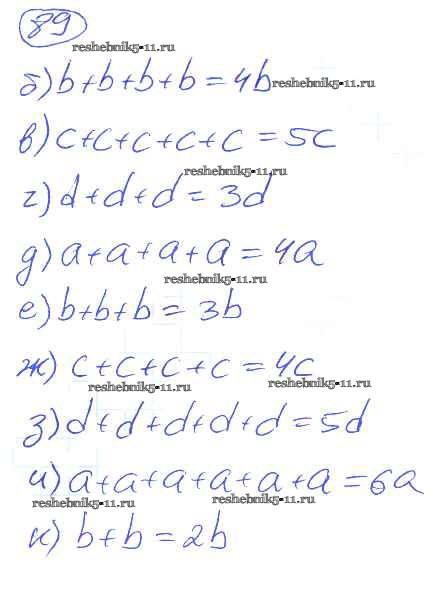 89
reshebnik5-11.ru
б) b+b+b+b=4b reshebnik5-11.ru
в) c+c+c+c+c=5c
reshebnik5-11.ru
г) d+d+d=3d
д) a+a+a+a=4a
reshebnik5-11.ru
е) b+b+b=3b
ж) c+c+c+c=4c
reshebnik5-11.ru reshebnik5-11.ru
з) d+d+d+d+d=5d
и) a+a+a+a+a+a=6a
reshebnik5-11.ru reshebnik5-11.ru
к) b+b=2b